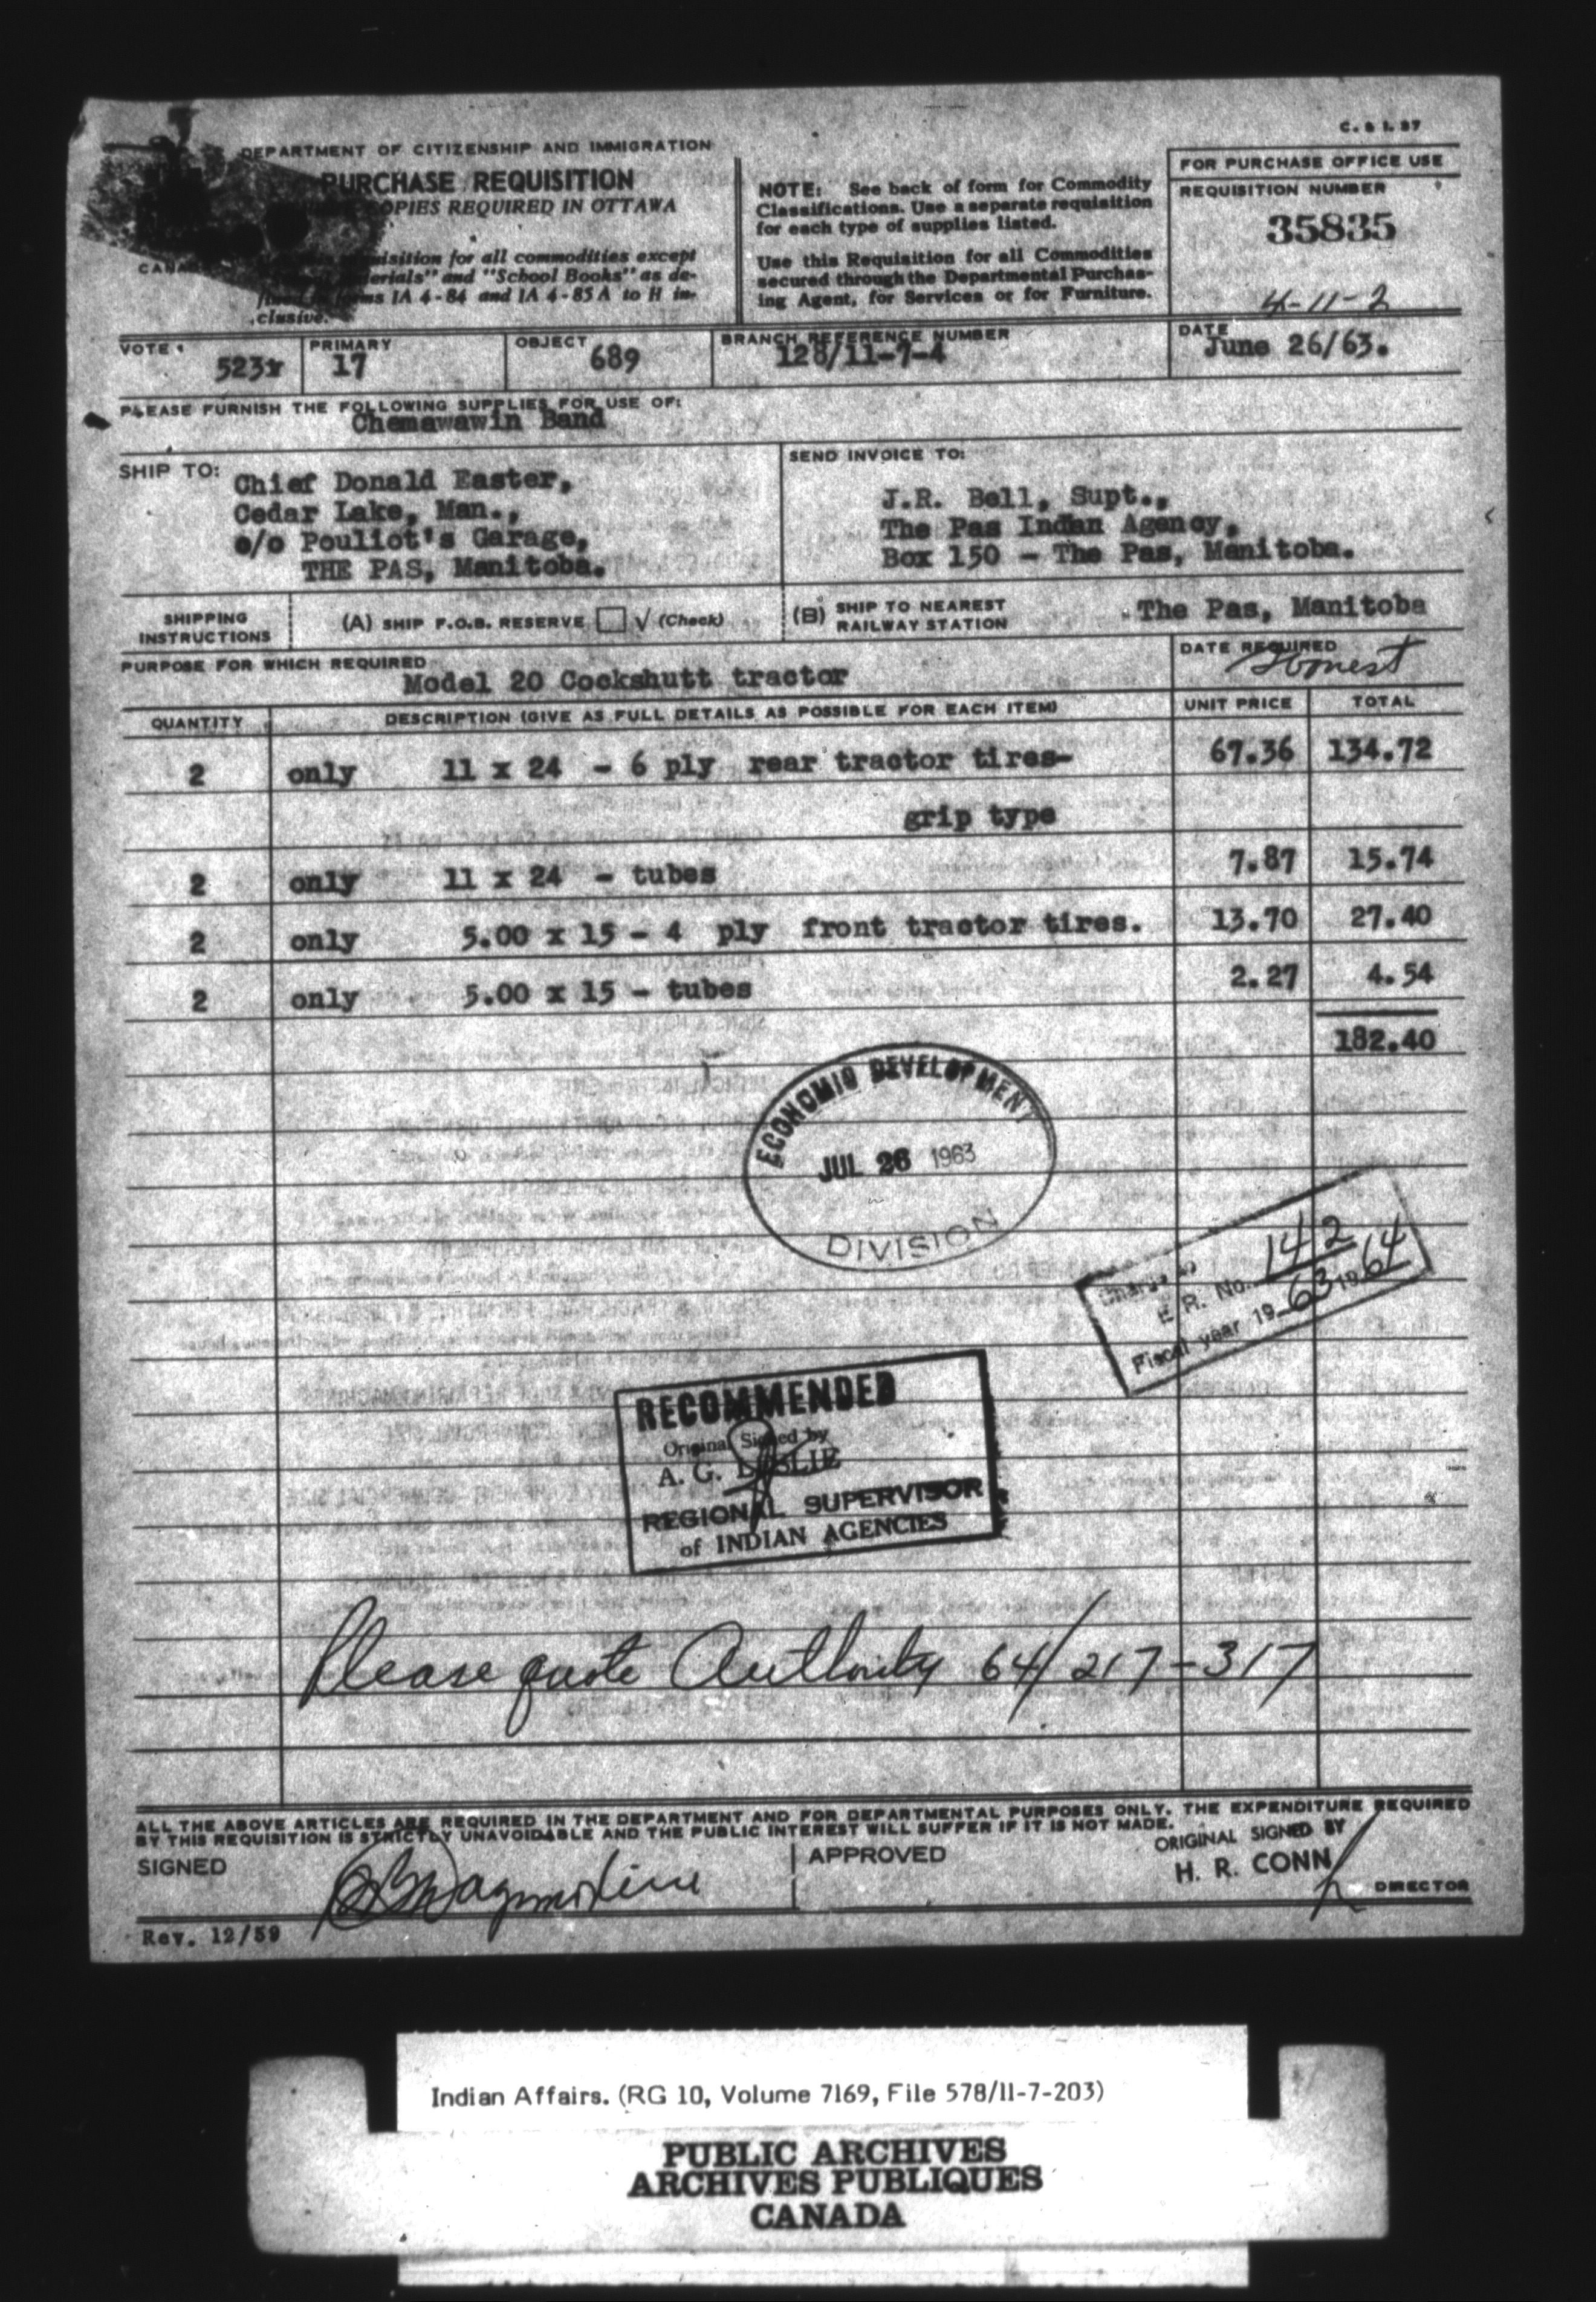 C. & I. 57
DEPARTMENT OF CITIZENSHIP AND IMMIGRATION
PURCHASE REQUISITION
COPIES REQUIRED IN OTTAWA
isition for all commodities except
erials" and "School Books" as de-
fined in forms IA 4-84 and IA 4-85A to H in-
clusive.
CANADA
NOTE: See back of form for Commodity
Classifications. Use a separate requisition
for each type of supplies listed.
Use this Requisition for all Commodities
secured through the Departmental Purchas-
ing Agent, for Services or for Furniture.
FOR PURCHASE OFFICE USE
REQUISITION NUMBER
35835
4-11-2
VOTE 523
PRIMARY 17
OBJECT 689
BRANCH REFERENCE NUMBER 128/11-7-4
DATE June 26/63.
PLEASE FURNISH THE FOLLOWING SUPPLIES FOR USE OF:
Chemawawin Band
SHIP TO: Chief Donald Easter,
Cedar Lake, Man.,
c/o Pouliot's Garage,
THE PAS, Manitoba.
SEND INVOICE TO:
J.R. Bell, Supt.,
The Pas Indian Agency,
Box 150 - The Pas, Manitoba.
SHIPPING INSTRUCTIONS
(A) SHIP F.O.B. RESERVE √ (Check)
(B) SHIP TO NEAREST RAILWAY STATION
The Pas, Manitoba
PURPOSE FOR WHICH REQUIRED
Model 20 Cockshutt tractor
DATE REQUIRED
QUANTITY DESCRIPTION (GIVE AS FULL DETAILS AS POSSIBLE FOR EACH ITEM) UNIT PRICE TOTAL
2 only 11 x 24 - 6 ply rear tractor tires- 67.36 134.72
grip type
2 only 11 x 24 - tubes 7.87 15.74
2 only 5.00 x 15 - 4 ply front tractor tires. 13.70 27.40
2 only 5.00 x 15 - tubes 2.27 4.54
182.40
ECONOMIC DEVELOPMENT
JUL 26 1963
DIVISION
Charge to
E.R. No. 142
Fiscal year 1963 1964
RECOMMENDED
Original Signed by
A. G. LESLIE
REGIONAL SUPERVISOR
of INDIAN AGENCIES
Please quote Authority 64/217-317
ALL THE ABOVE ARTICLES ARE REQUIRED IN THE DEPARTMENT AND FOR DEPARTMENTAL PURPOSES ONLY. THE EXPENDITURE REQUIRED
BY THIS REQUISITION IS STRICTLY UNAVOIDABLE AND THE PUBLIC INTEREST WILL SUFFER IF IT IS NOT MADE.
SIGNED
APPROVED
ORIGINAL SIGNED BY
H. R. CONN
DIRECTOR
Rev. 12/59
Indian Affairs. (RG 10, Volume 7169, File 578/11-7-203)
PUBLIC ARCHIVES
ARCHIVES PUBLIQUES
CANADA